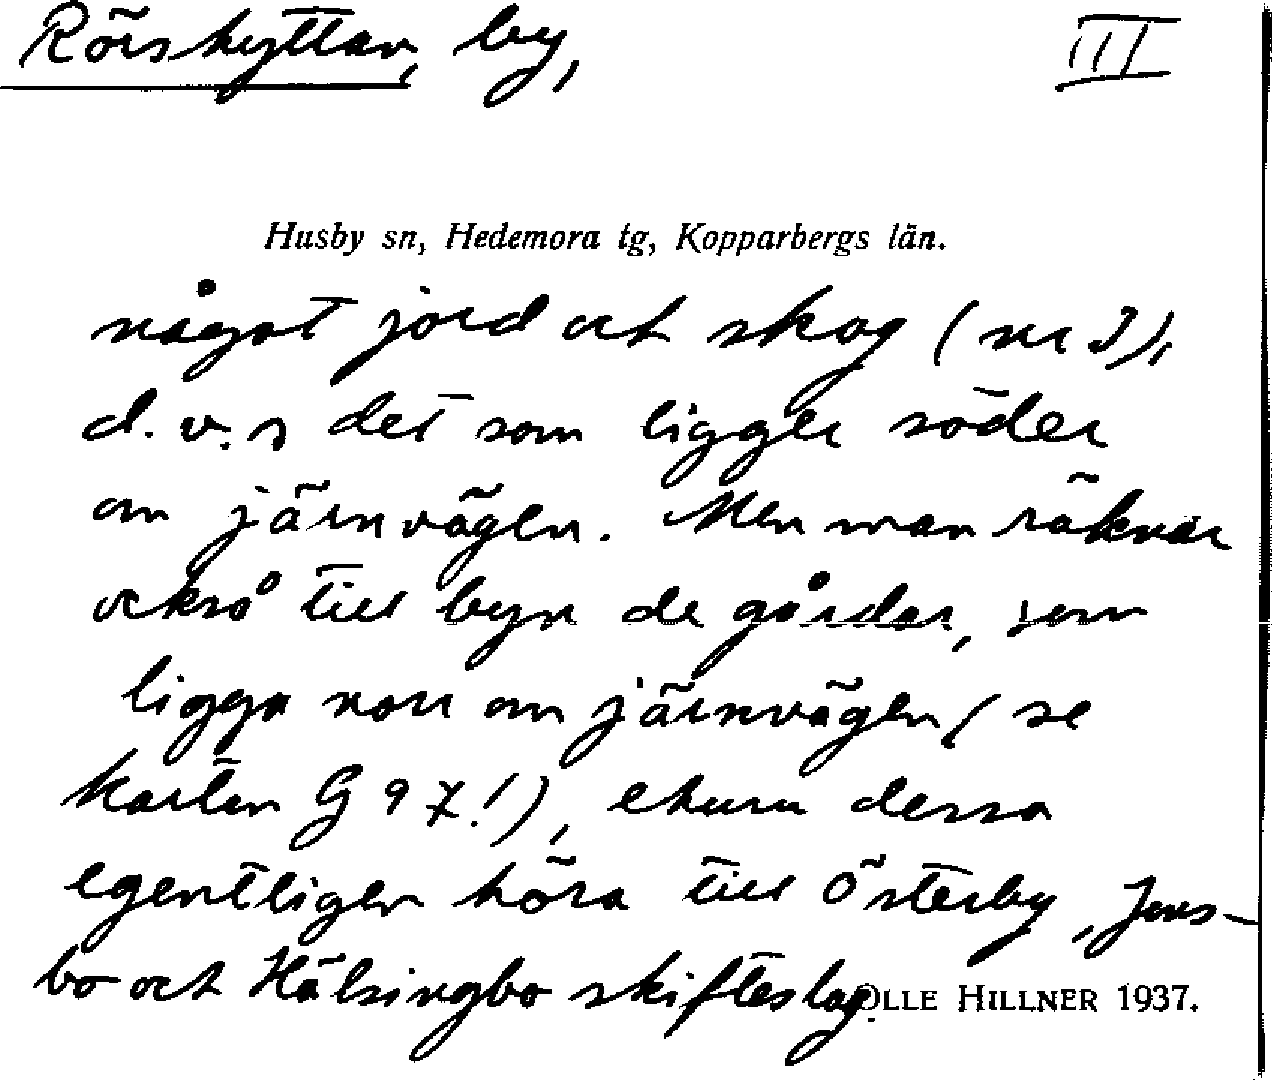 Rörshyttan, by,
III
Husby sn, Hedemora tg, Kopparbergs län.
något jord och skog (nr 3),
d.v.s det som ligger söder
om järnvägen. Men man räknar
också till byn de gårdar, som
ligga norr om järnvägen (se
kartan G 97!), ehuru dessa
egentligen höra till Österby, Jons-
bo och Hälsingbo skifteslag.
OLLE HILLNER 1937.